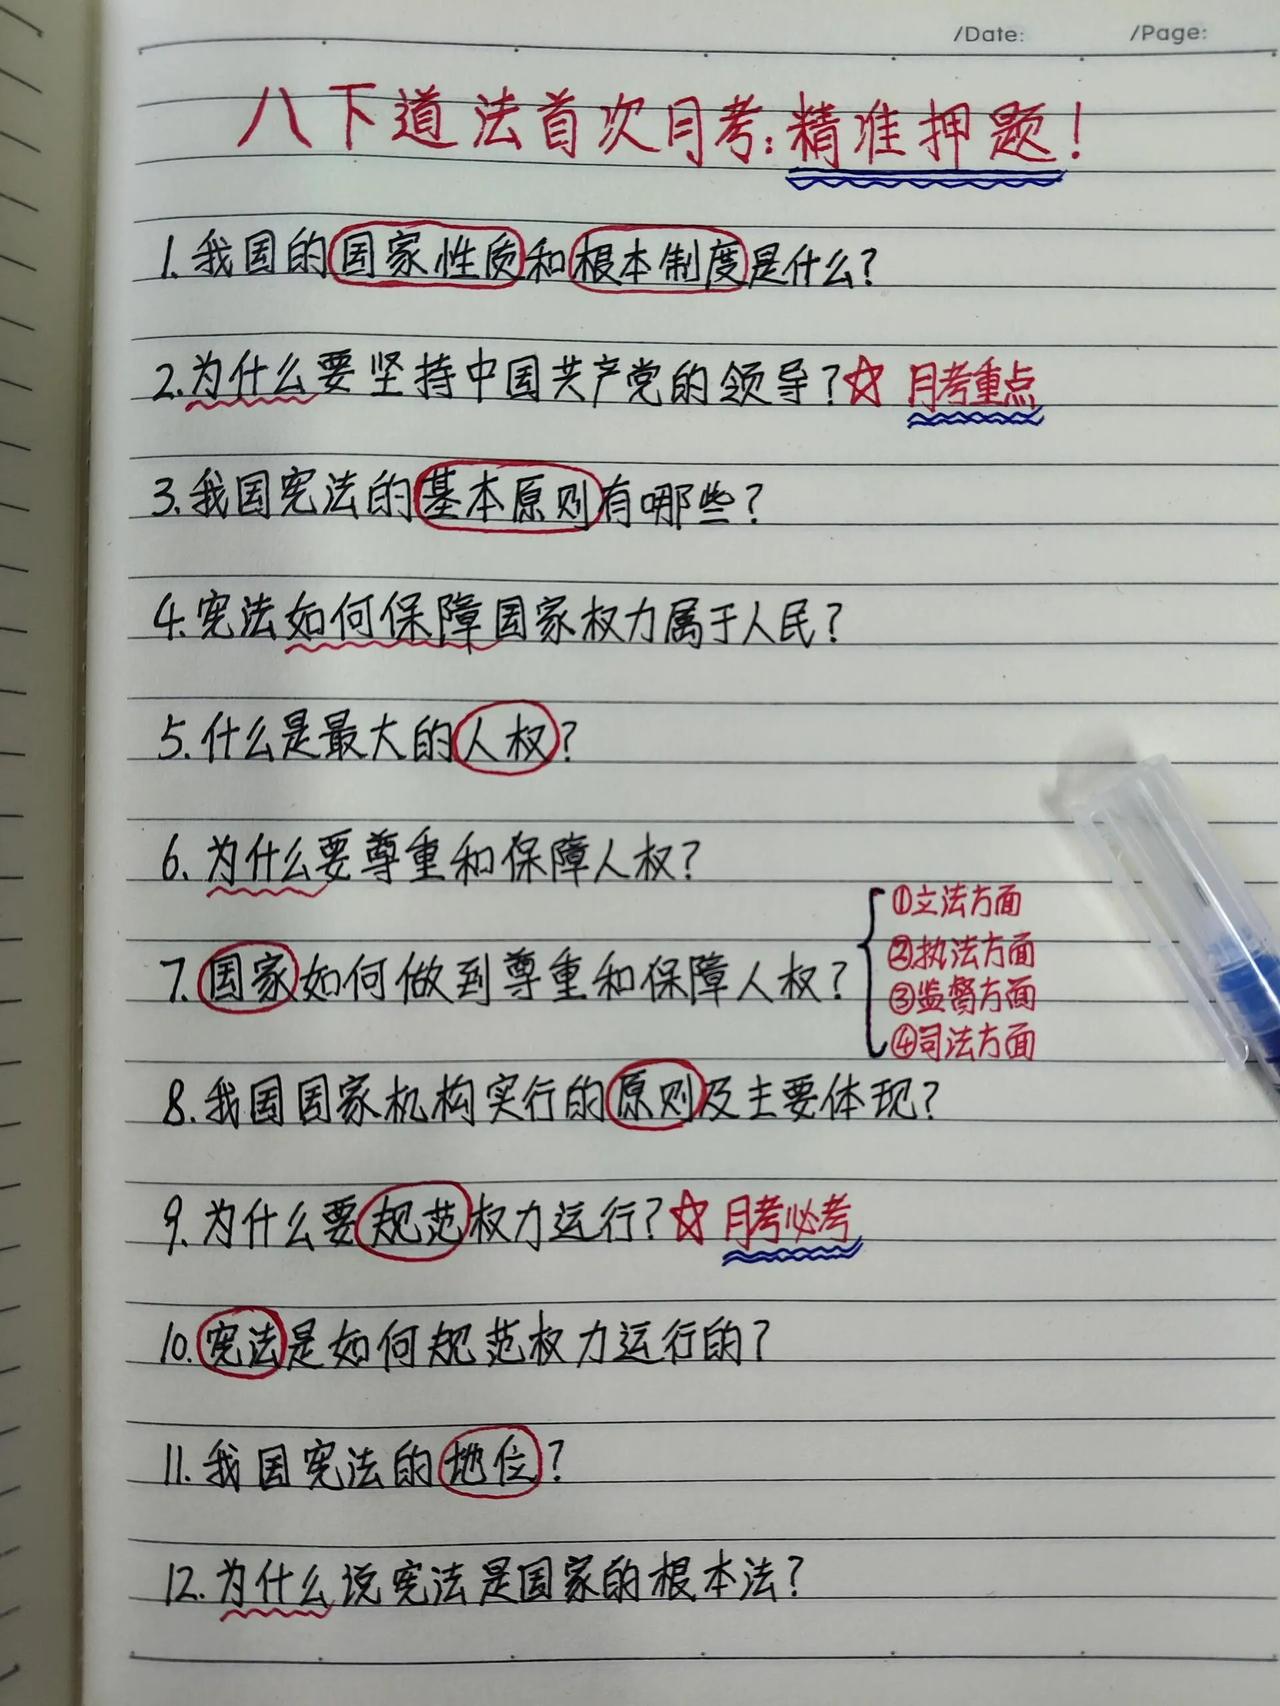 /Date: /Page:
八下道法首次月考:精准押题!
1.我国的国家性质和根本制度是什么?
2.为什么要坚持中国共产党的领导?☆ 月考重点
3.我国宪法的基本原则有哪些?
4.宪法如何保障国家权力属于人民?
5.什么是最大的人权?
6.为什么要尊重和保障人权?
7.国家如何做到尊重和保障人权?
①立法方面
②执法方面
③监督方面
④司法方面
8.我国国家机构实行的原则及主要体现?
9.为什么要规范权力运行?☆ 月考必考
10.宪法是如何规范权力运行的?
11.我国宪法的地位?
12.为什么说宪法是国家的根本法?